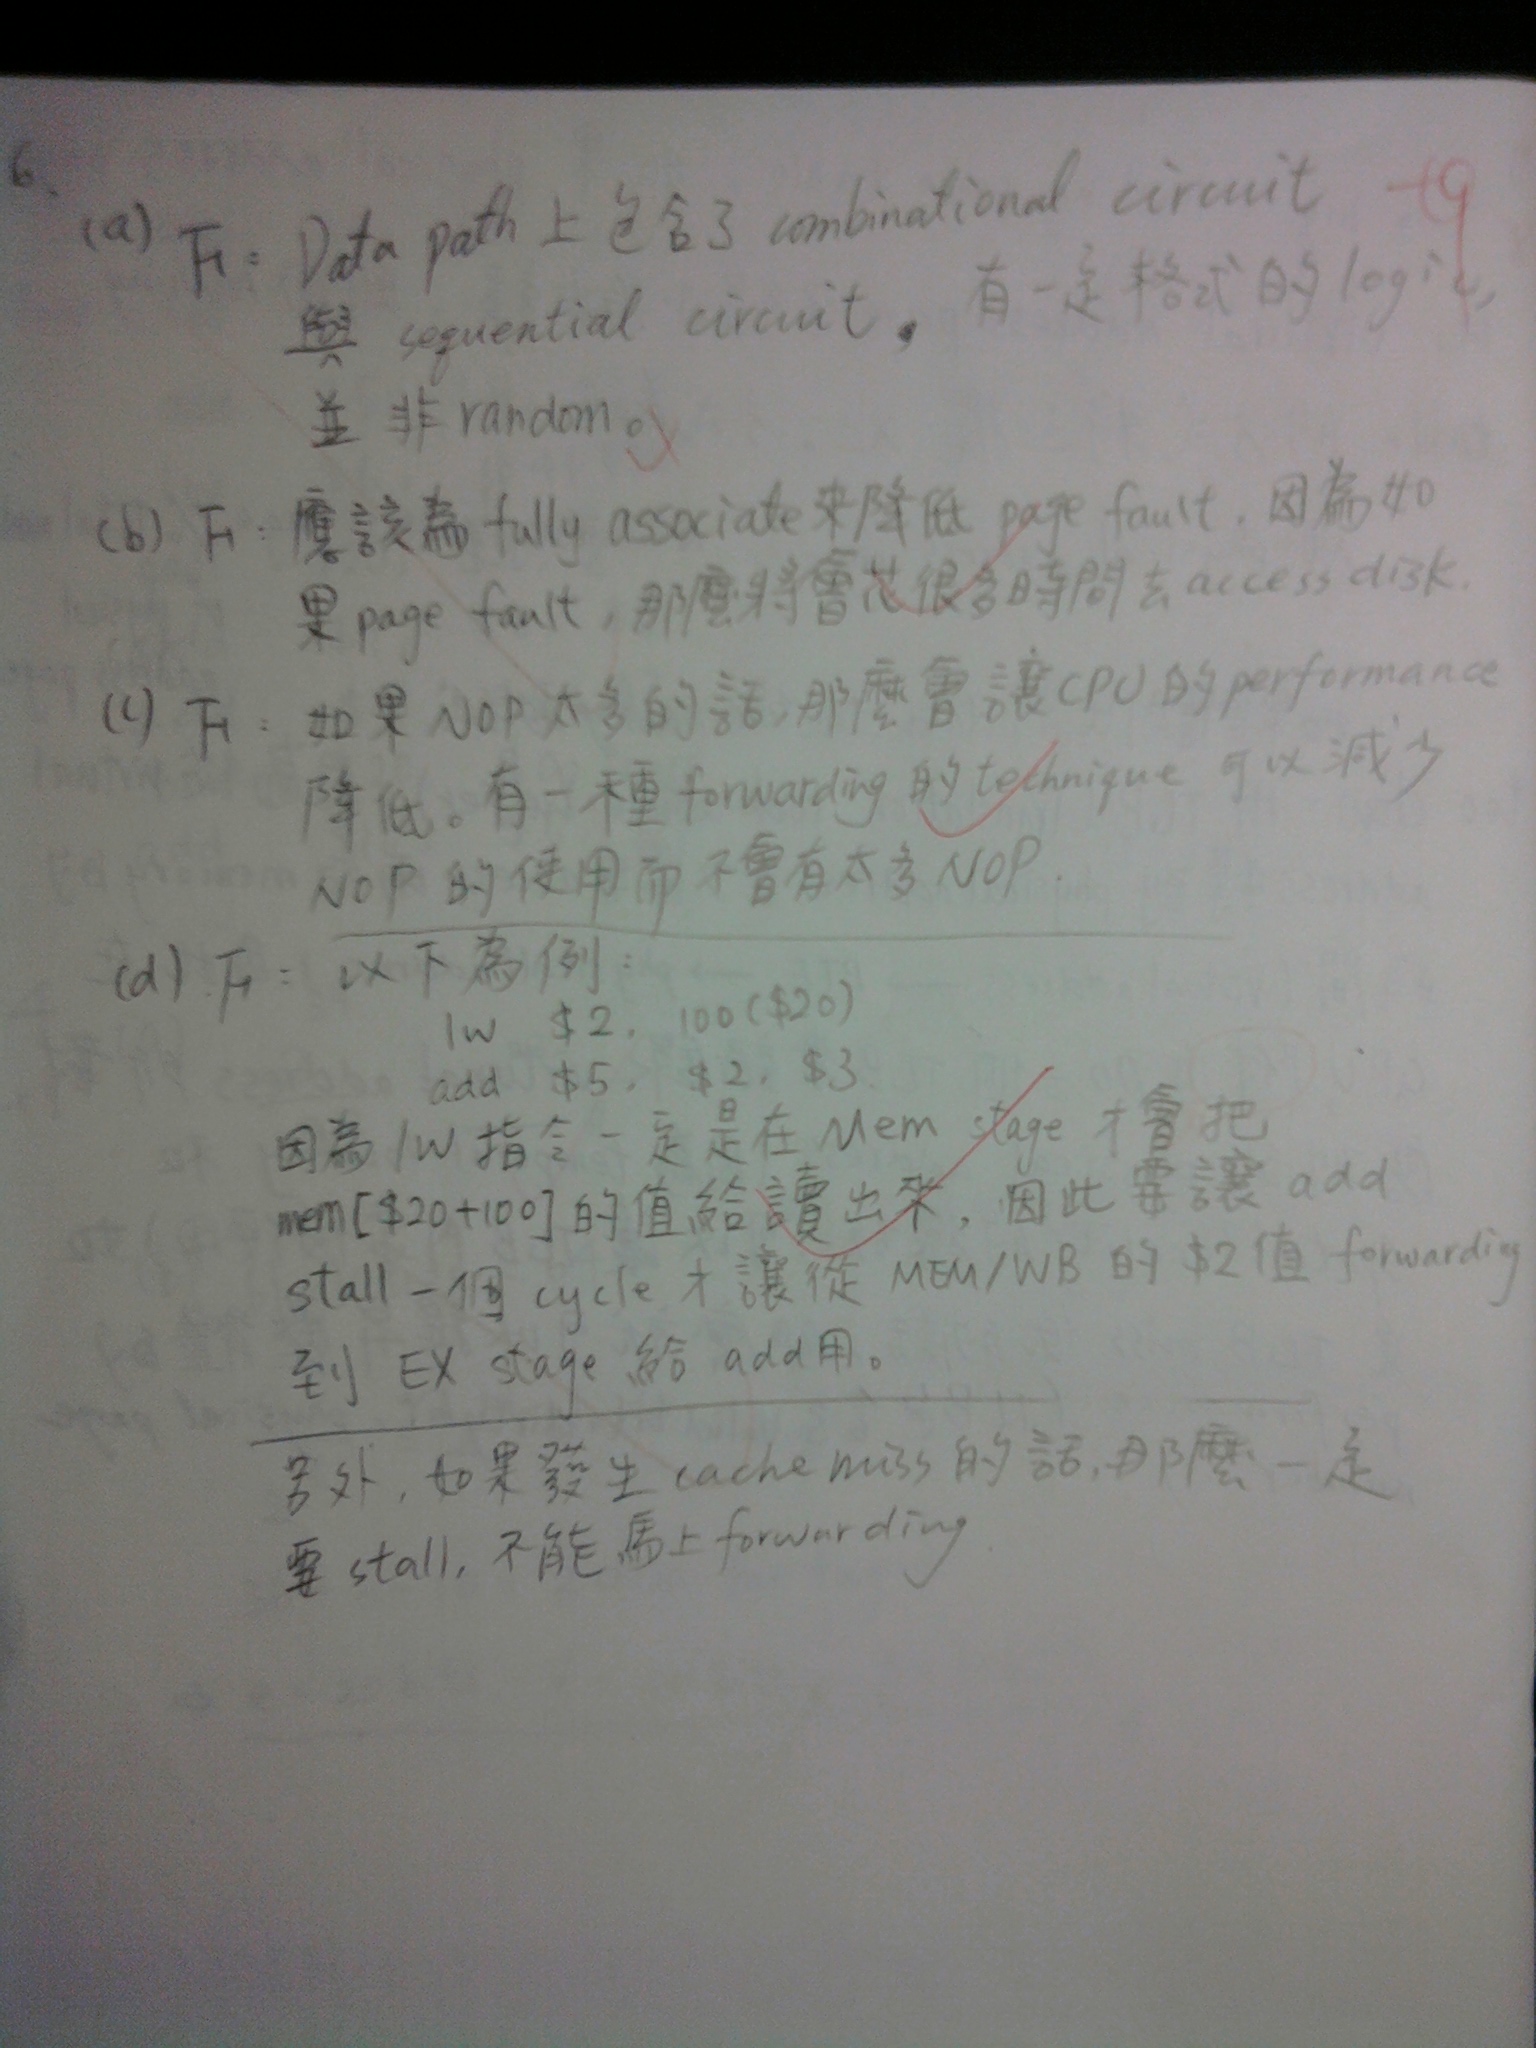 6.
(a) F: Data path 上包含了 combinational circuit +9
與 sequential circuit, 有一定格式的 logic,
並非 random。
(b) F: 應該為 fully associate 來降低 page fault, 因為如
果 page fault, 那麼將會花很多時間去 access disk.
(c) F: 如果 NOP 太多的話, 那麼會讓 CPU 的 performance
降低。有一種 forwarding 的 technique 可以減少
NOP 的使用而不會有太多 NOP.
(d) F: 以下為例:
lw $2, 100($20)
add $5, $2, $3
因為 lw 指令一定是在 Mem stage 才會把
mem[$20+100] 的值給讀出來, 因此要讓 add
stall 一個 cycle 才讓從 MEM/WB 的 $2 值 forwarding
到 EX stage 給 add 用。
另外, 如果發生 cache miss 的話, 那麼一定
要 stall, 不能馬上 forwarding